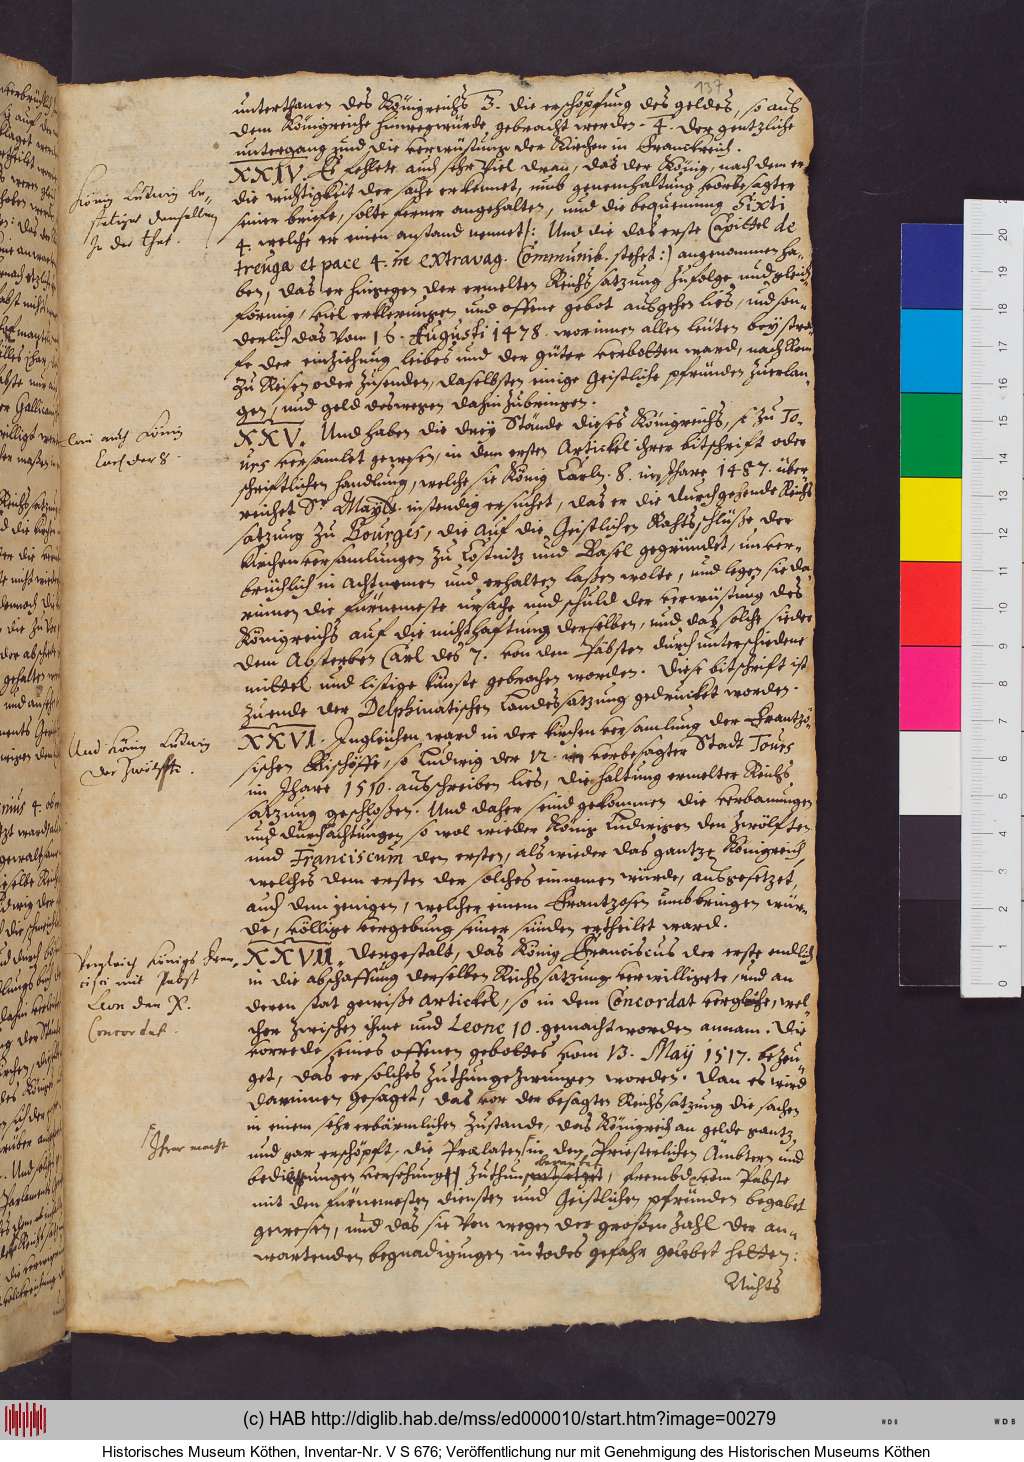 137
unterthanen des Königreichs 3. die erschöpfung des geldes, so aus
dem Königreiche hinweg würde gebracht werden. 4. der gentzliche
untergang und die verwüstung der Kirchen in Franckreich.
XXIV. Es fehlete auch sehr viel dran, das der König, nach dem er
die wichtigkeit der sache erkennet, umb genemhaltung vorbesagter
seiner briefe, solte ferner angehalten, und die bequemung Sixti
4. welche er einen anstand nennet/: Und die das erste Capittel de
treuga et pace 4. in extravag. Communib. stehet:/ angenommen ha-
ben, das er hingegen der ermelten Reichssatzung zufolge und gleich-
förmig, viel erklerungen und offene gebot ausgehen lies, und son-
derlich das vom 16. Augusti 1478. worinnen allen leuten bey straf-
fe der einziehung leibes und der güter verbotten ward, nach Rom
zu Reisen oder zusenden, daselbsten einige Geistliche pfründen zuerlan-
gen, und geld deswegen dahin zubringen.
XXV. Und haben die drey Stände dieses Königreichs, so zu To-
urs versamlet gewesen, in dem ersten Artickel ihrer bitschrift oder
schriftlichen handlung, welche sie König Carln. 8. im Jhare 1487. über-
reichet Sr. Mayt. instendig ersuchet, das er die durchgehende Reichs
satzung zu Bourges, die auf die Geistlichen Rahtsschlüße der
Kirchenversamlungen zu Costnitz und Basel gegründet, unver-
brüchlich in acht nemen und erhalten laßen wolte, und legen sie da-
rinnen die fürnemeste ursache und schuld der verwüstung des
Königreichs auf die nichthaftung derselben, und das solche sieder
dem Absterben Carl des 7. von den Päbsten durch unterschiedene
mittel und listige künste gebrochen worden. Diese bitschrift ist
zu ende der Delphinatischen Landessatzung gedrucket worden.
XXVI. Ingleichen ward in der Kirchenversamlung der Frantzö-
sischen Bischöffe, so Ludwig der 12. in vorbesagter Stadt Tours
im Jhare 1510. ausschreiben lies, die haltung ermelter Reichs
satzung geschloßen. Und daher seind gekommen die verbannungen
und durchächtungen so wol wieder König Ludwigen den Zwölften
und Franciscum den ersten, als wieder das gantze Königreich,
welches dem ersten der solches einnemen würde, ausgesetzet,
auch dem jenigen, welcher einem Frantzosen umbbringen wür-
de, völlige vergebung seiner sünden ertheilet ward.
XXVII. Dergestalt, das König Franciscus der erste endlich
in die abschaffung derselben Reichssatzung verwilligete, und an
deren stat gewiße Artickel, so in dem Concordat vergliche, wel-
cher zwischen ihme und Leone 10. gemacht worden annam. Die
vorrede seines offenen gebottes vom 13. May 1517. bezeu-
get, das er solches zuthun gezwungen worden. Dan es wird
darinnen gesaget, das vor der besagten Reichssatzung die sachen
in einem sehr erbärmlichen zustande, das Königreich an gelde gantz
und gar erschöpft, die Prälaten in den Priesterlichen Ämbtern und
bedienungen versehung zuthun beraubet, frembde vom Pabste
mit den fürnemesten diensten und Geistlichen pfründen begabet
gewesen, und das sie von wegen der großen zahl der an-
wartenden begnadigungen in todes gefahr gelebet hetten:
Nichts
König Ludwig be-
stetiget denselben
in der that.
Wie auch König
Carl der 8.
Und König Ludwig
der Zwölffte.
Vergleich Königs Fran-
cisci mit Pabst
Leon den X.
Concordat.
Ihrer macht
(c) HAB http://diglib.hab.de/mss/ed000010/start.htm?image=00279
WDB
WDB
Historisches Museum Köthen, Inventar-Nr. V S 676; Veröffentlichung nur mit Genehmigung des Historischen Museums Köthen